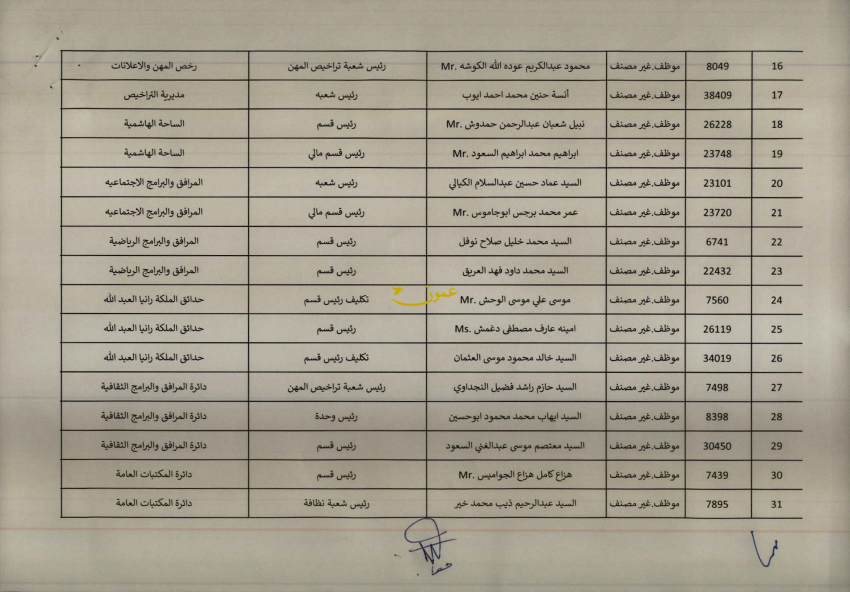 16 8049 موظف.غير مصنف محمود عبدالكريم عوده الله الكوشه .Mr رئيس شعبة تراخيص المهن رخص المهن والاعلانات
17 38409 موظف.غير مصنف أنسة حنين محمد احمد ايوب رئيس شعبه مديرية التراخيص
18 26228 موظف.غير مصنف نبيل شعبان عبدالرحمن حمدوش .Mr رئيس قسم الساحة الهاشمية
19 23748 موظف.غير مصنف ابراهيم محمد ابراهيم السعود .Mr رئيس قسم مالي الساحة الهاشمية
20 23101 موظف.غير مصنف السيد عماد حسين عبدالسلام الكيالي رئيس شعبه المرافق والبرامج الاجتماعيه
21 23720 موظف.غير مصنف عمر محمد برجس ابوجاموس .Mr رئيس قسم مالي المرافق والبرامج الاجتماعيه
22 6741 موظف.غير مصنف السيد محمد خليل صلاح نوفل رئيس قسم المرافق والبرامج الرياضية
23 22432 موظف.غير مصنف السيد محمد داود فهد العريق رئيس قسم المرافق والبرامج الرياضية
24 7560 موظف.غير مصنف موسى علي موسى الوحش .Mr تكليف رئيس قسم حدائق الملكة رانيا العبد الله
عمون
25 26119 موظف.غير مصنف امينه عارف مصطفى دغمش .Ms رئيس قسم حدائق الملكة رانيا العبد الله
26 34019 موظف.غير مصنف السيد خالد محمود موسى العثمان تكليف رئيس قسم حدائق الملكة رانيا العبد الله
27 7498 موظف.غير مصنف السيد حازم راشد فضيل النجداوي رئيس شعبة تراخيص المهن دائرة المرافق والبرامج الثقافية
28 8398 موظف.غير مصنف السيد ايهاب محمد محمود ابوحسين رئيس وحدة دائرة المرافق والبرامج الثقافية
29 30450 موظف.غير مصنف السيد معتصم موسى عبدالغني السعود رئيس قسم دائرة المرافق والبرامج الثقافية
30 7439 موظف.غير مصنف هزاع كامل هزاع الجواميس .Mr رئيس قسم دائرة المكتبات العامة
31 7895 موظف.غير مصنف السيد عبدالرحيم ذيب محمد خير رئيس شعبة نظافة دائرة المكتبات العامة